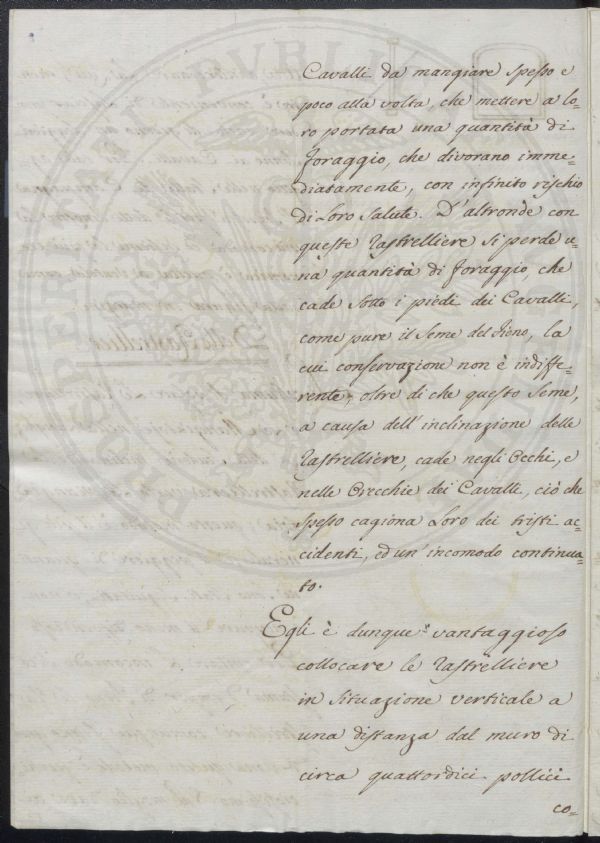 Cavalli da mangiare spesso e
poco alla volta, che mettere a lo=
ro portata una quantità di
foraggio, che divorano imme=
diatamente, con infinito rischio
di Loro Salute. D'altronde con
queste rastrelliere si perde u=
na quantità di foraggio, che
cade sotto i piedi dei Cavalli,
come pure il Seme del Fieno, la
cui conservazione non è indiffe=
rente, oltre di che questo Seme,
a causa dell'inclinazione delle
rastrelliere, cade negli Occhi, e
nelle Orecchie dei Cavalli, ciò che
spesso cagiona Loro dei tristi ac=
cidenti, ed un'incomodo continua=
to.
Egli è dunque vantaggioso
collocare le rastrelliere
in situazione verticale a
una distanza dal muro di
circa quattordici pollici
co=